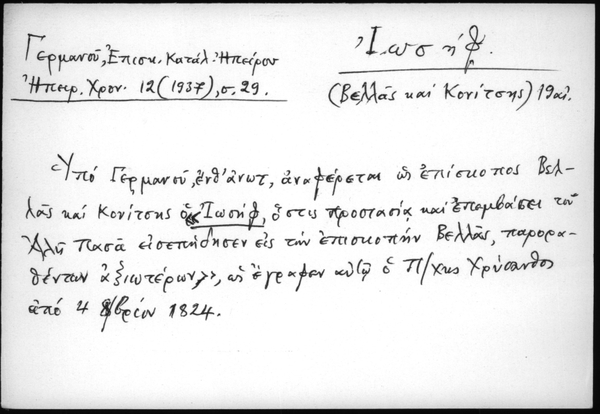 Γερμανοῦ, Ἐπισκ. Κατάλ. Ἠπείρου
Ἠπειρ. Χρον. 12 (1937), σ. 29.
Ἰωσήφ.
(Βελλᾶς καί Κονίτσης) 19 αἰ.
Ὑπό Γερμανοῦ, ἔνθ' ἀνωτ, ἀναφέρεται ὡς ἐπίσκοπος Βελ-
λᾶς καί Κονίτσης ὁ Ἰωσήφ, ὅστις προστασίᾳ καί ἐπεμβάσει τοῦ
Ἀλῆ Πασᾶ εἰσεπήδησεν εἰς τήν ἐπισκοπήν Βελλᾶς, παρορα-
θέντων ἀξιωτέρων», ὡς ἔγραφεν αὐτῷ ὁ Π/χης Χρύσανθος
ἀπό 4 8/βρίου 1824.